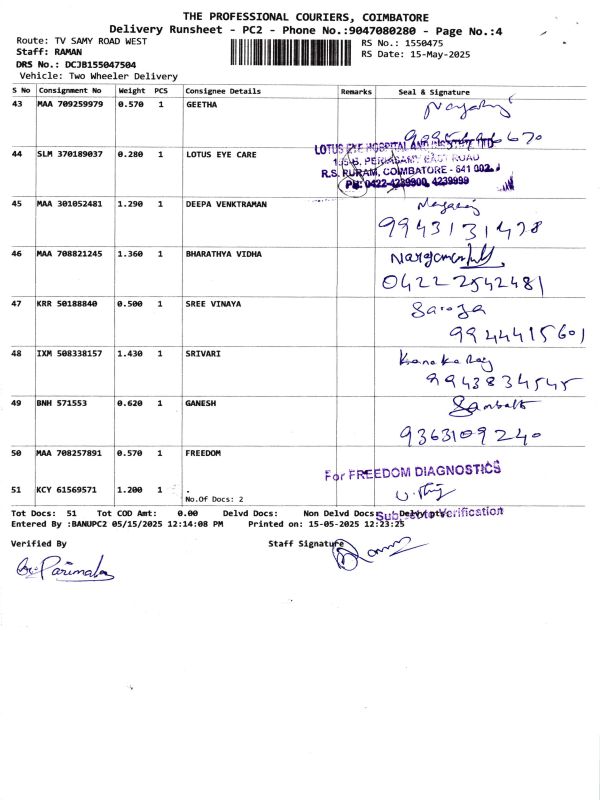 THE PROFESSIONAL COURIERS, COIMBATORE
Delivery Runsheet - PC2 - Phone No.:9047080280 - Page No.:4
Route: TV SAMY ROAD WEST
RS No.: 1550475
Staff: RAMAN
RS Date: 15-May-2025
DRS No.: DCJB155047504
Vehicle: Two Wheeler Delivery
S No Consignment No Weight PCS Consignee Details Remarks Seal & Signature
43 MAA 709259979 0.570 1 GEETHA
44 SLM 370189037 0.280 1 LOTUS EYE CARE
LOTUS EYE HOSPITAL AND INSTITUTE LTD
EAST ROAD
R.S. PURAM, COIMBATORE - 641 002.
PH: 0422-4239900, 4239999
45 MAA 301052481 1.290 1 DEEPA VENKTRAMAN
9943131478
46 MAA 708821245 1.360 1 BHARATHYA VIDHA
04222542481
47 KRR 50188840 0.500 1 SREE VINAYA
Saroja
9944415601
48 IXM 508338157 1.430 1 SRIVARI
Kanakaraj
9943834545
49 BNH 571553 0.620 1 GANESH
9363109240
50 MAA 708257891 0.570 1 FREEDOM
For FREEDOM DIAGNOSTICS
51 KCY 61569571 1.200 1 .
No.Of Docs: 2
Tot Docs: 51 Tot COD Amt: 0.00 Delvd Docs: Non Delvd Docs:
Subject to Verification
Entered By :BANUPC2 05/15/2025 12:14:08 PM Printed on: 15-05-2025 12:23:25
Verified By
Staff Signature
Parimala
Raman